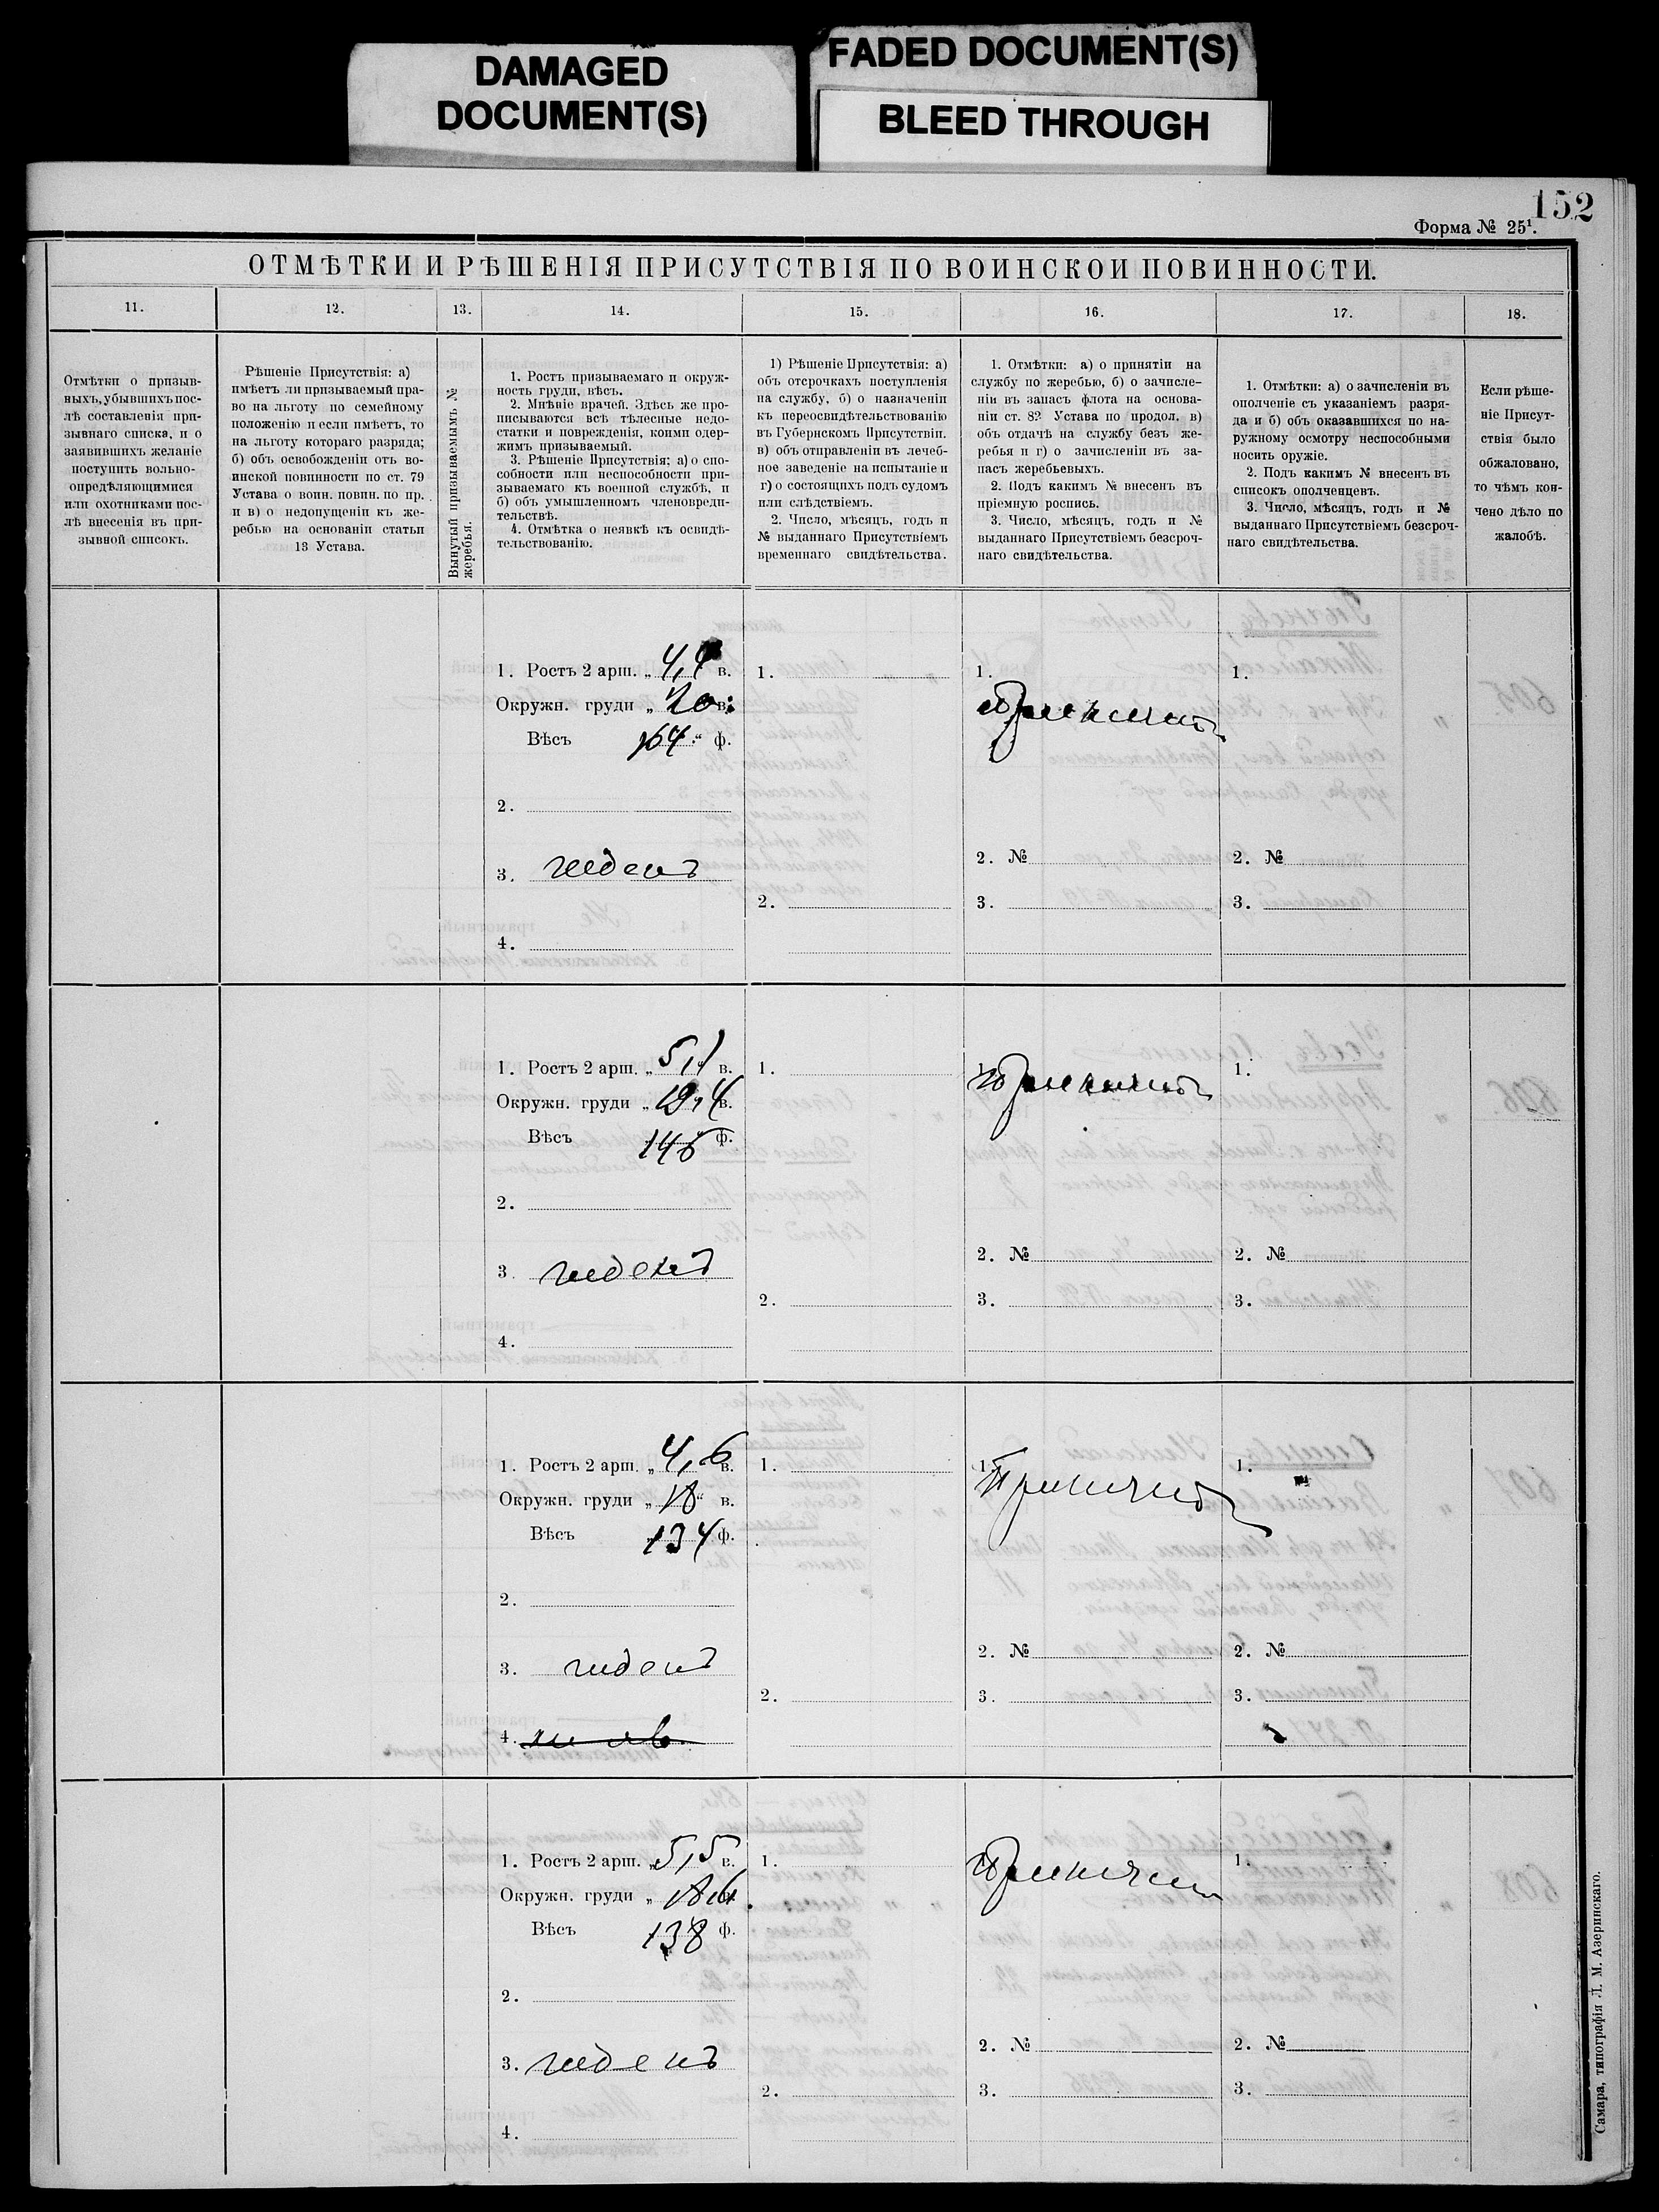 DAMAGED
DOCUMENT(S)
FADED DOCUMENT(S)
BLEED THROUGH
152
Форма № 25¹.
ОТМѢТКИ И РѢШЕНІЯ ПРИСУТСТВІЯ ПО ВОИНСКОИ ПОВИННОСТИ.
11.
12.
13.
14.
15.
16.
17.
18.
Отмѣтки о призыв-
ныхъ, убывшихъ пос-
лѣ составленія при-
зывнаго списка, и о
заявившихъ желаніе
поступить вольно-
опредѣляющимися
или охотниками пос-
лѣ внесенія въ при-
зывной списокъ.
Рѣшеніе Присутствія: а)
имѣетъ ли призываемый пра-
во на льготу по семейному
положенію и если имѣетъ, то
на льготу котораго разряда;
б) объ освобожденіи отъ во-
инской повинности по ст. 79
Устава о воин. повин. по пр.
и в) о недопущеніи къ же-
ребью на основаніи статьи
13 Устава.
Вынутый призываемымъ №
жеребья.
1. Ростъ призываемаго и окруж-
ность груди, вѣсъ.
2. Мнѣніе врачей. Здѣсь же про-
писываются всѣ тѣлесные недо-
статки и поврежденія, коими одер-
жимъ призываемый.
3. Рѣшеніе Присутствія: а) о спо-
собности или неспособности при-
зываемаго къ военной службѣ, и
б) объ умышленномъ членовреди-
тельствѣ.
4. Отмѣтка о неявкѣ къ освидѣ-
тельствованію.
1) Рѣшеніе Присутствія: а)
объ отсрочкахъ поступленія
на службу, б) о назначеніи
къ переосвидѣтельствованію
въ Губернскомъ Присутствіи.
в) объ отправленіи въ лечеб-
ное заведеніе на испытаніе и
г) о состоящихъ подъ судомъ
или слѣдствіемъ.
2. Число, мѣсяцъ, годъ и
№ выданнаго Присутствіемъ
временнаго свидѣтельства.
1. Отмѣтки: а) о принятіи на
службу по жеребью, б) о зачисле-
ніи въ запасъ флота на основа-
ніи ст. 82 Устава по продол. в)
объ отдачѣ на службу безъ же-
ребья и г) о зачисленіи въ за-
пасъ жеребьевыхъ.
2. Подъ какимъ № внесенъ въ
пріемную роспись.
3. Число, мѣсяцъ, годъ и №
выданнаго Присутствіемъ безсроч-
наго свидѣтельства.
1. Отмѣтки: а) о зачисленіи въ
ополченіе съ указаніемъ разря-
да и б) объ оказавшихся по на-
ружному осмотру неспособными
носить оружіе.
2. Подъ какимъ № внесенъ въ
списокъ ополченцевъ.
3. Число, мѣсяцъ, годъ и №
выданнаго Присутствіемъ безсроч-
наго свидѣтельства.
Если рѣше-
ніе Присут-
ствія было
обжаловано,
то чѣмъ кон-
чено дѣло по
жалобѣ.
1. Ростъ 2 арш. „ 4,4 в. 1. 1. 1.
Окружн. груди „ 20 в. Принятъ
Вѣсъ 164 ф.
2.
2. № 2. №
3. годенъ
2. 3. 3.
4.
1. Ростъ 2 арш. „ 5,1 в. 1. Принятъ 1.
Окружн. груди „ 19,4 в.
Вѣсъ 146 ф.
2.
2. № 2. №
3. годенъ
2. 3. 3.
4.
1. Ростъ 2 арш. „ 4,6 в. 1. 1. Принятъ 1.
Окружн. груди „ 18 “ в.
Вѣсъ 134 ф.
2.
2. № 2. №
3. годенъ
2. 3. 3.
4. не яв.
1. Ростъ 2 арш. „ 5,5 в. 1. Принятъ 1.
Окружн. груди „ 18,4
Вѣсъ 138 ф.
2.
2. № 2. №
3. годенъ
2. 3. 3.
4.
Самара, типографія Л. М. Азеринскаго.